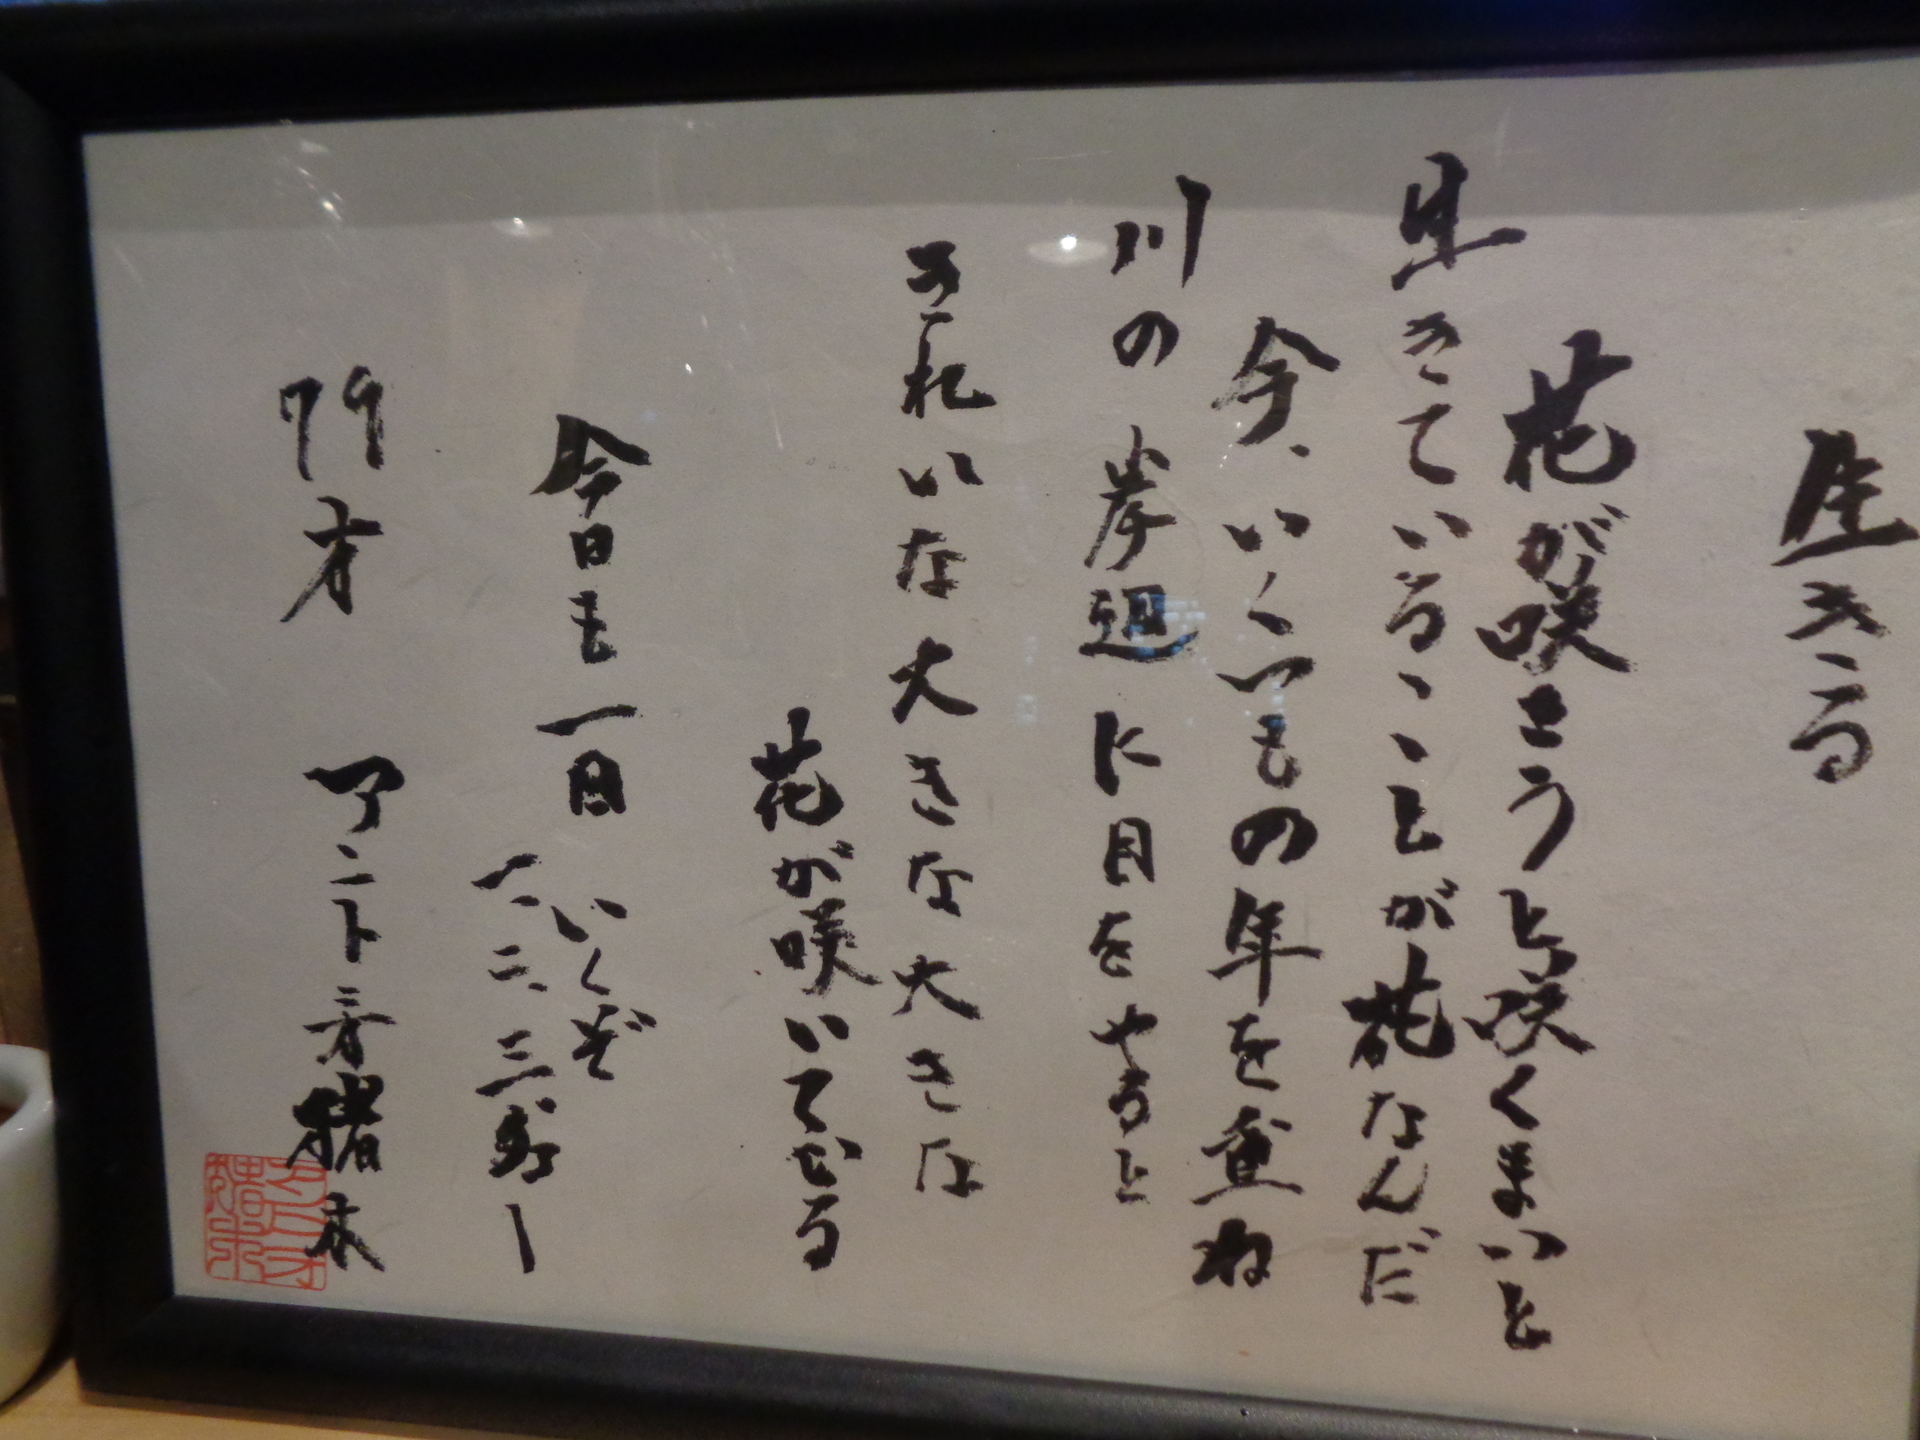 生きる
花が咲こうと咲くまいと
生きていることが花なんだ
今、いくつもの年を重ね
川の岸辺に目をやると
きれいな大きな大きな
花が咲いてでる
今日も一日 いくぞ
一、二、三、ダー
79才 アントニオ猪木